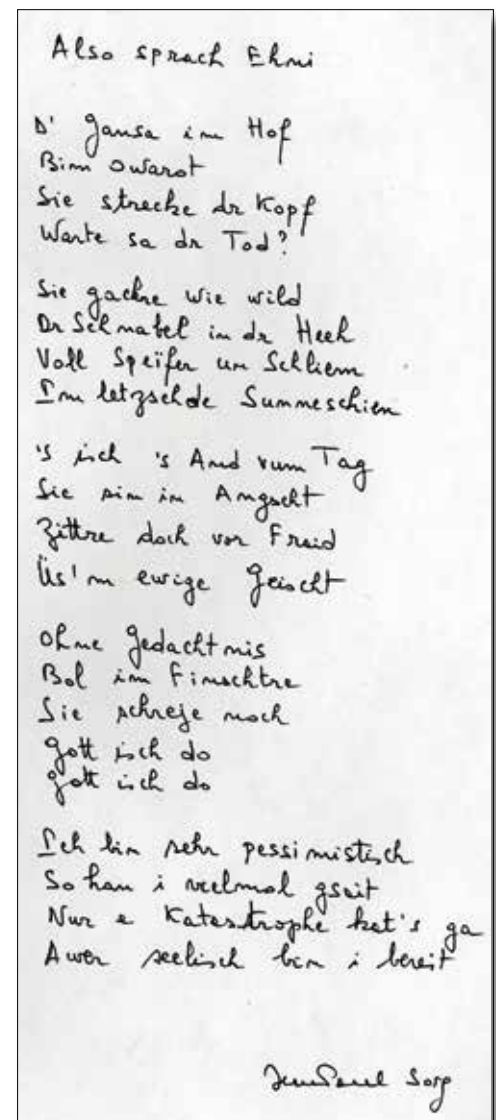 Also sprach Ehni
D' Gansa im Hof
Bim Owarot
Sie strecke dr Kopf
Warte sa dr Tod?
Sie gachre wie wild
Dr Schnabel in dr Heeh
Voll Speïfer un Schliem
Im letzschde Summeschien
's isch 's And vum Tag
Sie sin in Angscht
Zittre doch vor Fraid
Üs'm ewige Geischt
Ohne Gedachtnis
Bol im Finschtre
Sie schreje noch
Gott isch do
Gott isch do
Ich bin sehr pessimistisch
So han i veelmol gsait
Nur e Katastrophe het's ga
Awer seelisch bin i bereit
Jean Paul Sorg